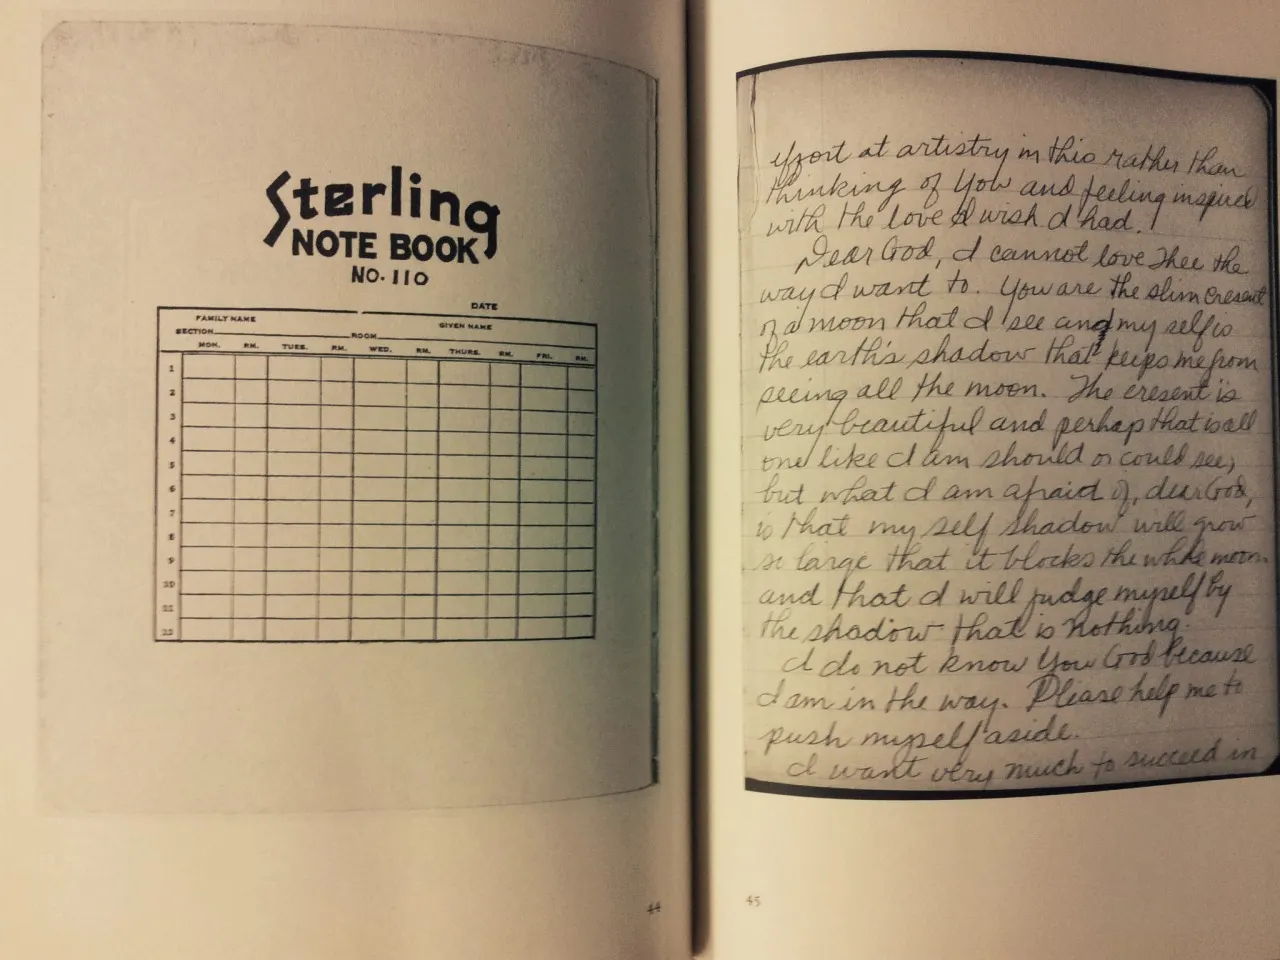 Sterling
NOTE BOOK
NO. 110
DATE
FAMILY NAME
GIVEN NAME
SECTION ROOM
MON. RM. TUES. RM. WED. RM. THURS. RM. FRI. RM.
1
2
3
4
5
6
7
8
9
10
11
12
44
effort at artistry in this rather than
thinking of You and feeling inspired
with the love I wish I had.
Dear God, I cannot love Thee the
way I want to. You are the slim cresent
of a moon that I see and my self is
the earth's shadow that keeps me from
seeing all the moon. The cresent is
very beautiful and perhap that is all
one like I am should or could see;
but what I am afraid of, dear God,
is that my self shadow will grow
so large that it blocks the whole moon
and that I will judge myself by
the shadow that is nothing.
I do not know You God because
I am in the way. Please help me to
push myself aside.
I want very much to succeed in
45